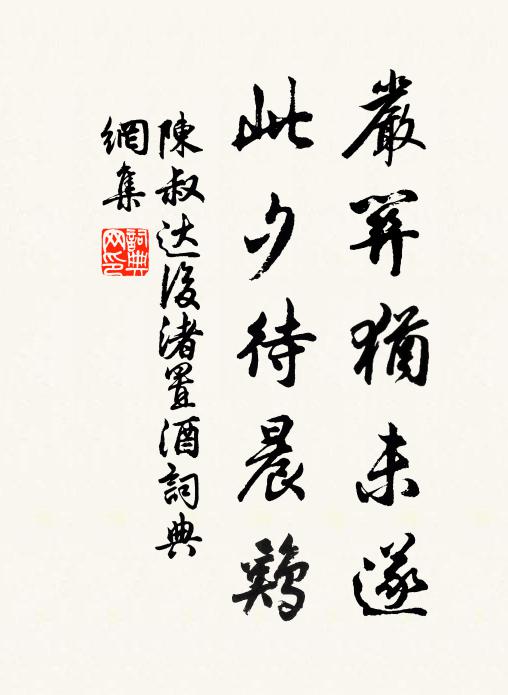 嚴關猶未遂
此夕待晨鷄
陳叔达後渚置酒詞典
網集
詞典网印